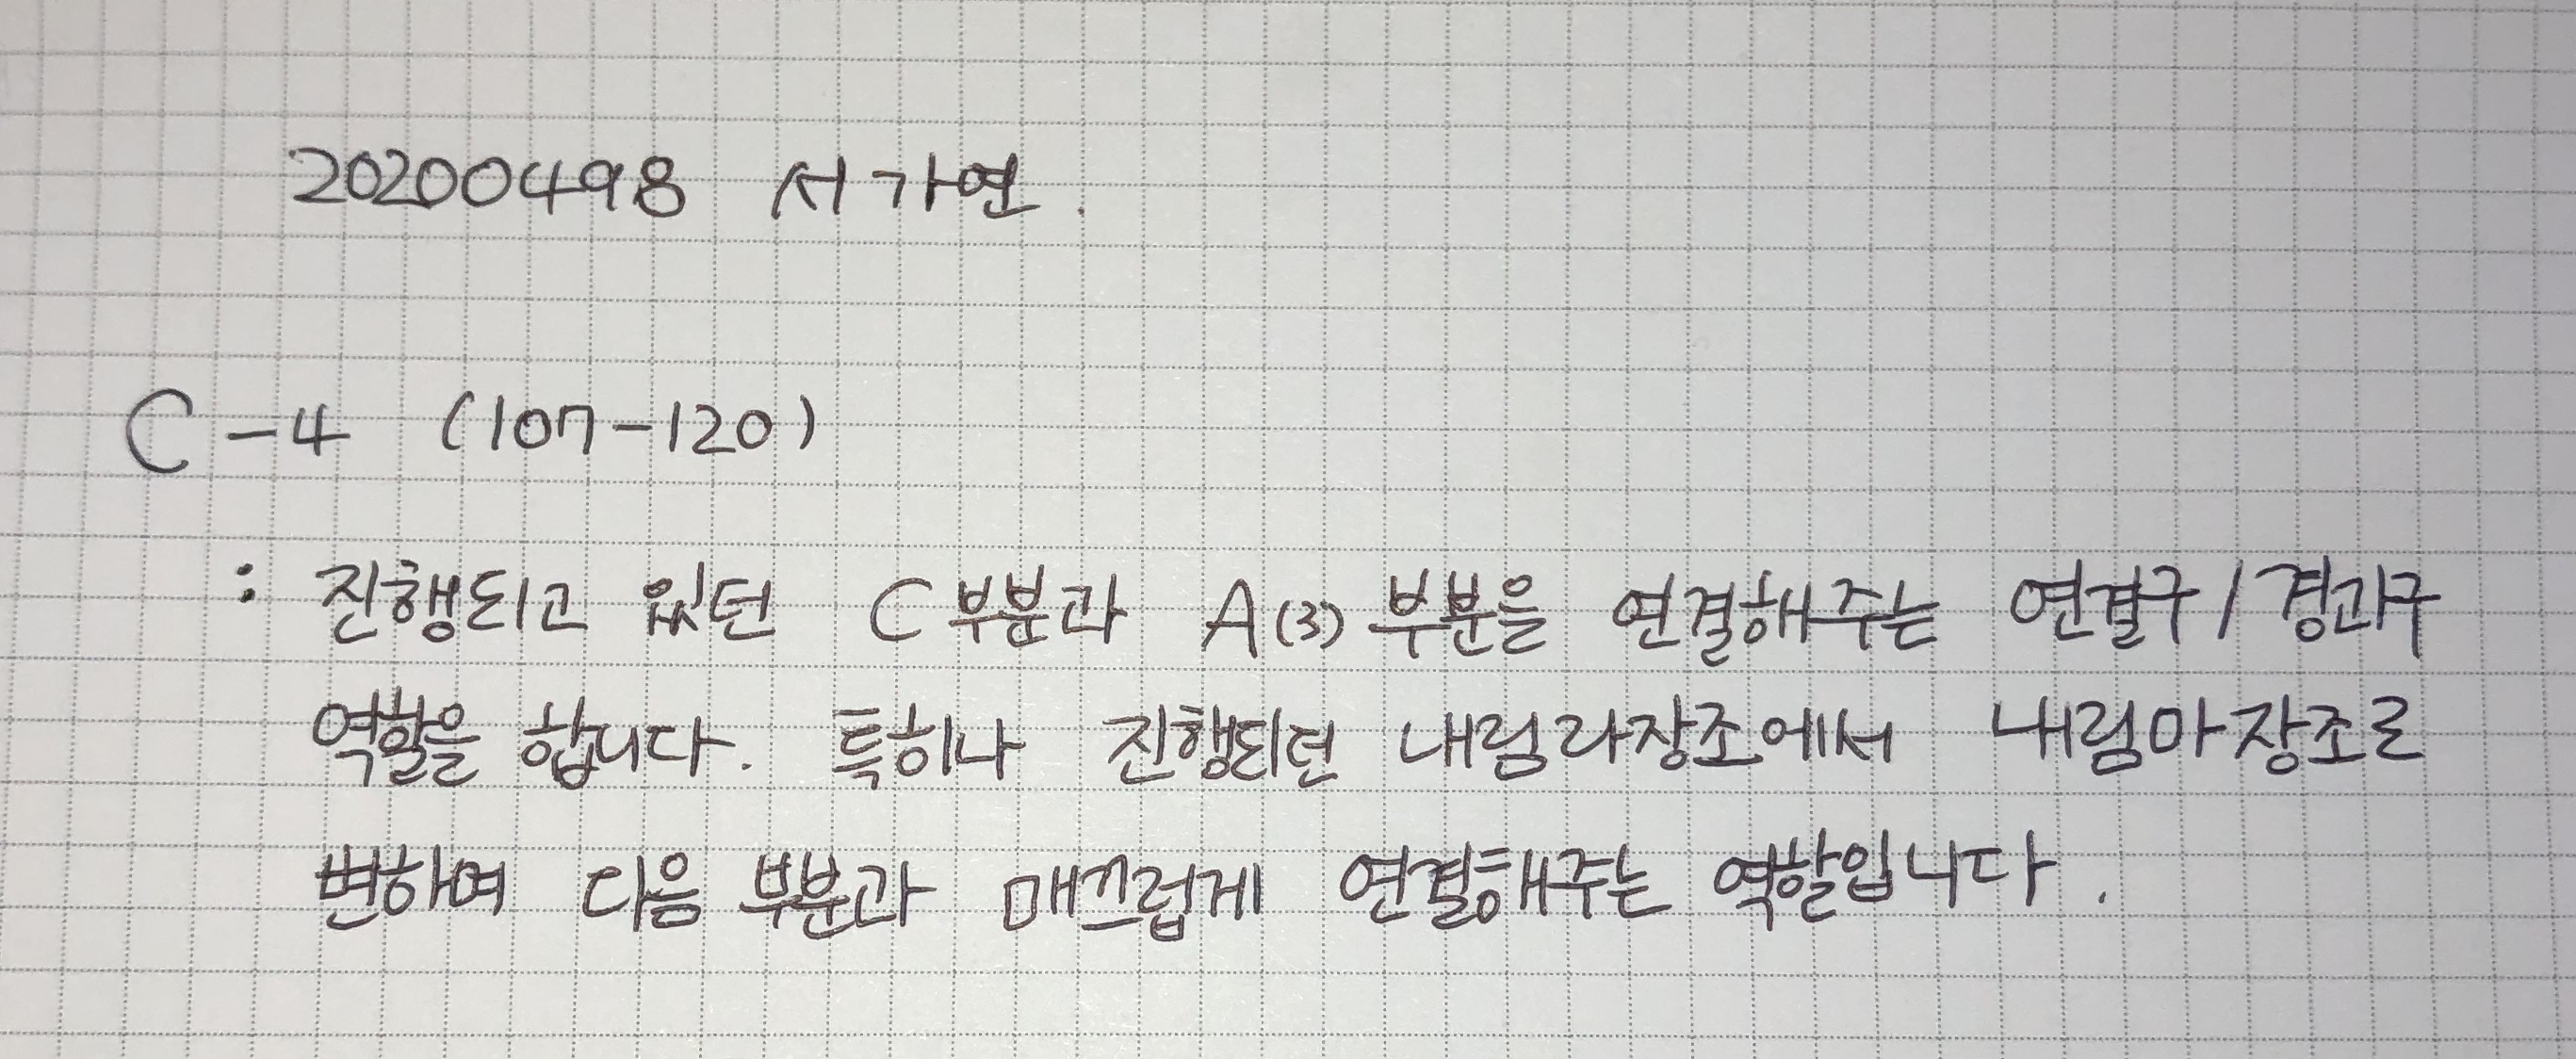 20200498 서가연.
C-4 (107-120)
: 진행되고 있던 C부분과 A(3)부분을 연결해주는 연결구/경과구
역할을 합니다. 특히나 진행되던 내림라장조에서 내림마장조로
변하여 다음 부분과 매끄럽게 연결해주는 역할입니다.